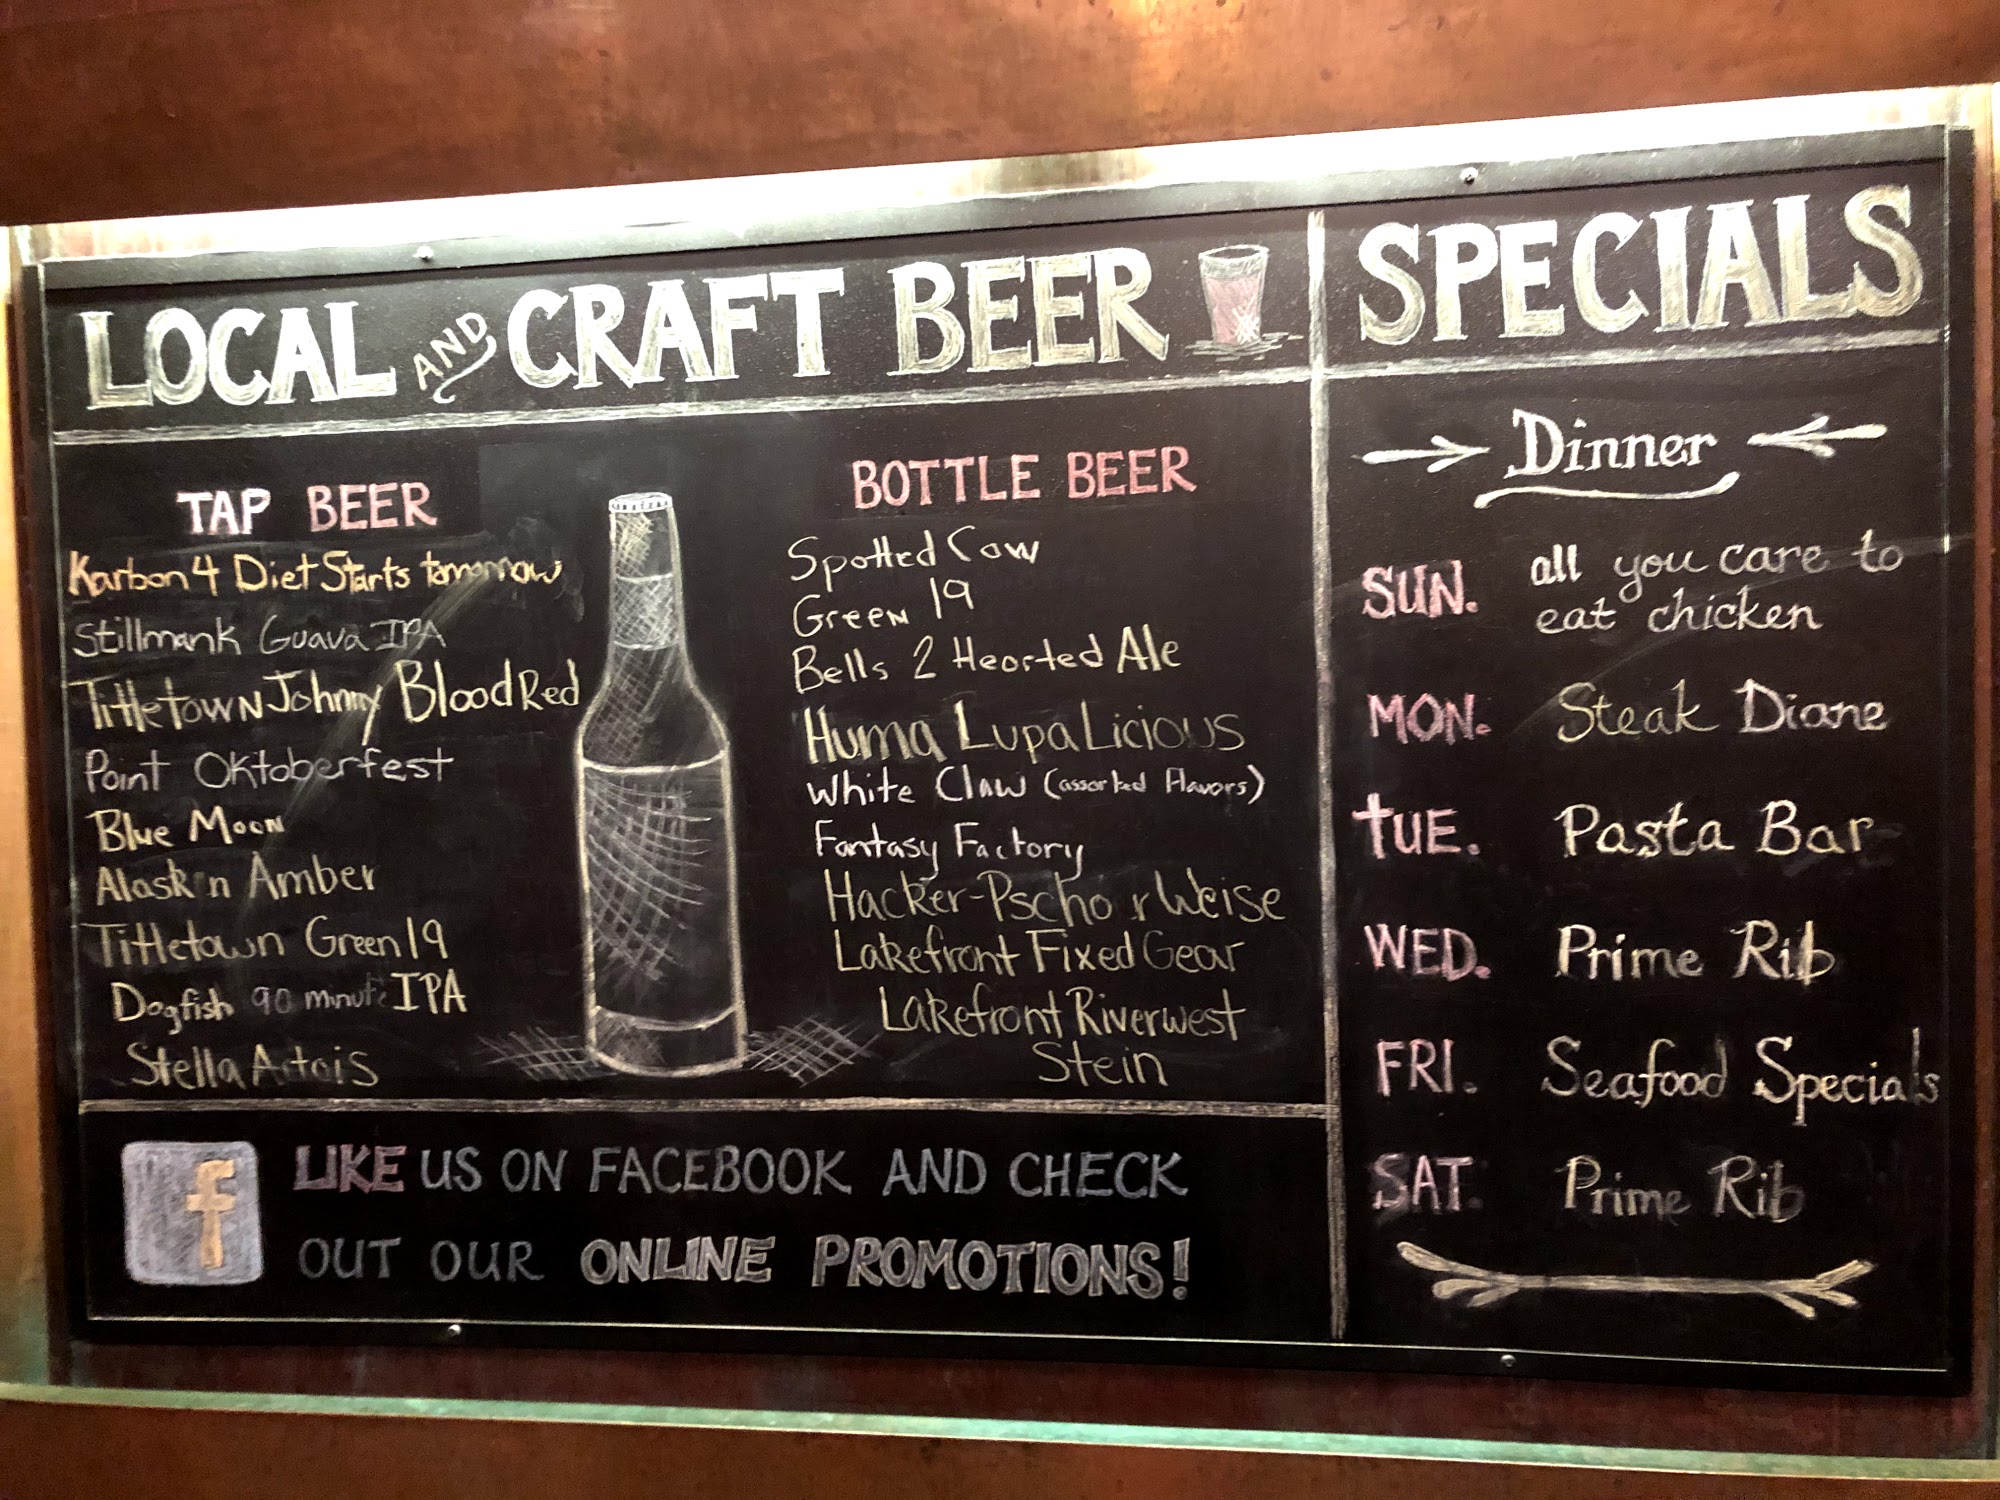 LOCAL AND CRAFT BEER
TAP BEER
Karbon 4 Diet Starts tomorrow
Stillmank Guava IPA
Titletown Johnny Blood Red
Point Oktoberfest
Blue Moon
Alaskan Amber
Titletown Green 19
Dogfish 90 minute IPA
Stella Artois
BOTTLE BEER
Spotted Cow
Green 19
Bells 2 Hearted Ale
Huma LupaLicious
White Claw (assorted Flavors)
Fantasy Factory
Hacker-Pschorr Weise
Lakefront Fixed Gear
Lakefront Riverwest
Stein
f LIKE US ON FACEBOOK AND CHECK
OUT OUR ONLINE PROMOTIONS!
SPECIALS
Dinner
SUN. all you care to
eat chicken
MON. Steak Diane
TUE. Pasta Bar
WED. Prime Rib
FRI. Seafood Specials
SAT. Prime Rib